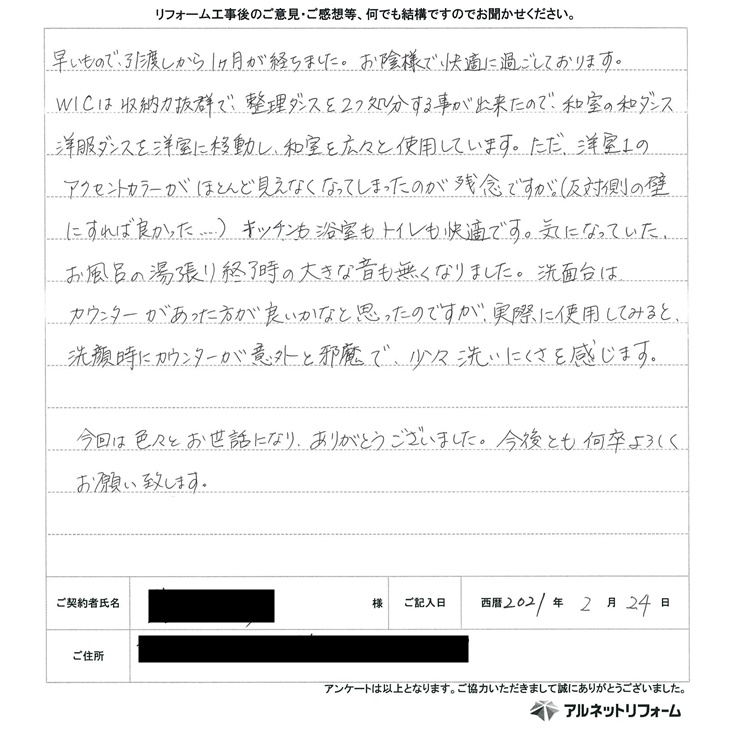 リフォーム工事後のご意見・ご感想等、何でも結構ですのでお聞かせください。
早いもので、引渡しから1ヶ月が経ちました。お陰様で快適に過ごしております。
WICは収納力抜群で、整理ダンスを2つ処分する事が出来たので、和室の和ダンス
洋服ダンスを洋室に移動し、和室を広々と使用しています。ただ、洋室1の
アクセントカラーがほとんど見えなくなってしまったのが残念ですが。(反対側の壁
にすれば良かった……)キッチンも浴室もトイレも快適です。気になっていた、
お風呂の湯張り終了時の大きな音も無くなりました。洗面台は
カウンターがあった方が良いかなと思ったのですが、実際に使用してみると、
洗顔時にカウンターが意外と邪魔で、少々洗いにくさを感じます。
今回は色々とお世話になり、ありがとうございました。今後とも何卒よろしく
お願い致します。
ご契約者氏名 様 ご記入日 西暦2021年2月24日
ご住所
アンケートは以上となります。ご協力いただきまして誠にありがとうございました。
アルネットリフォーム